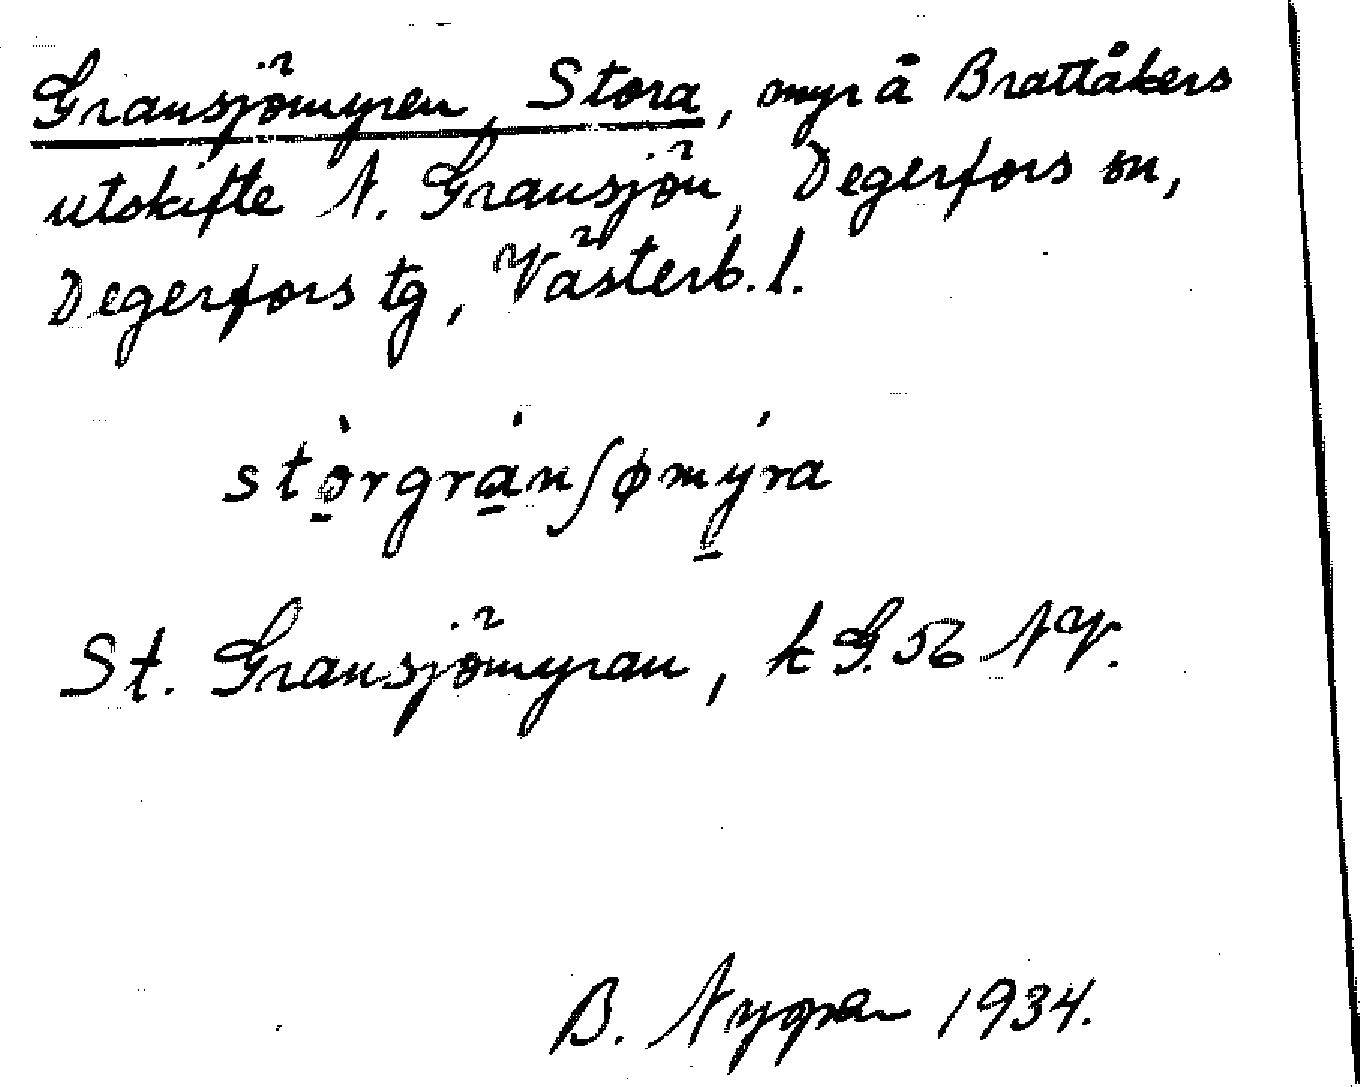 Gransjömyren, Stora, myr å Brattåkers
utskifte N. Gransjön, Degerfors sn,
Degerfors tg, Västerb. l.
stò̱rgrá̱nʃømý̱ra
St. Gransjömyran, k G. 56 NV.
B. Nygren 1934.